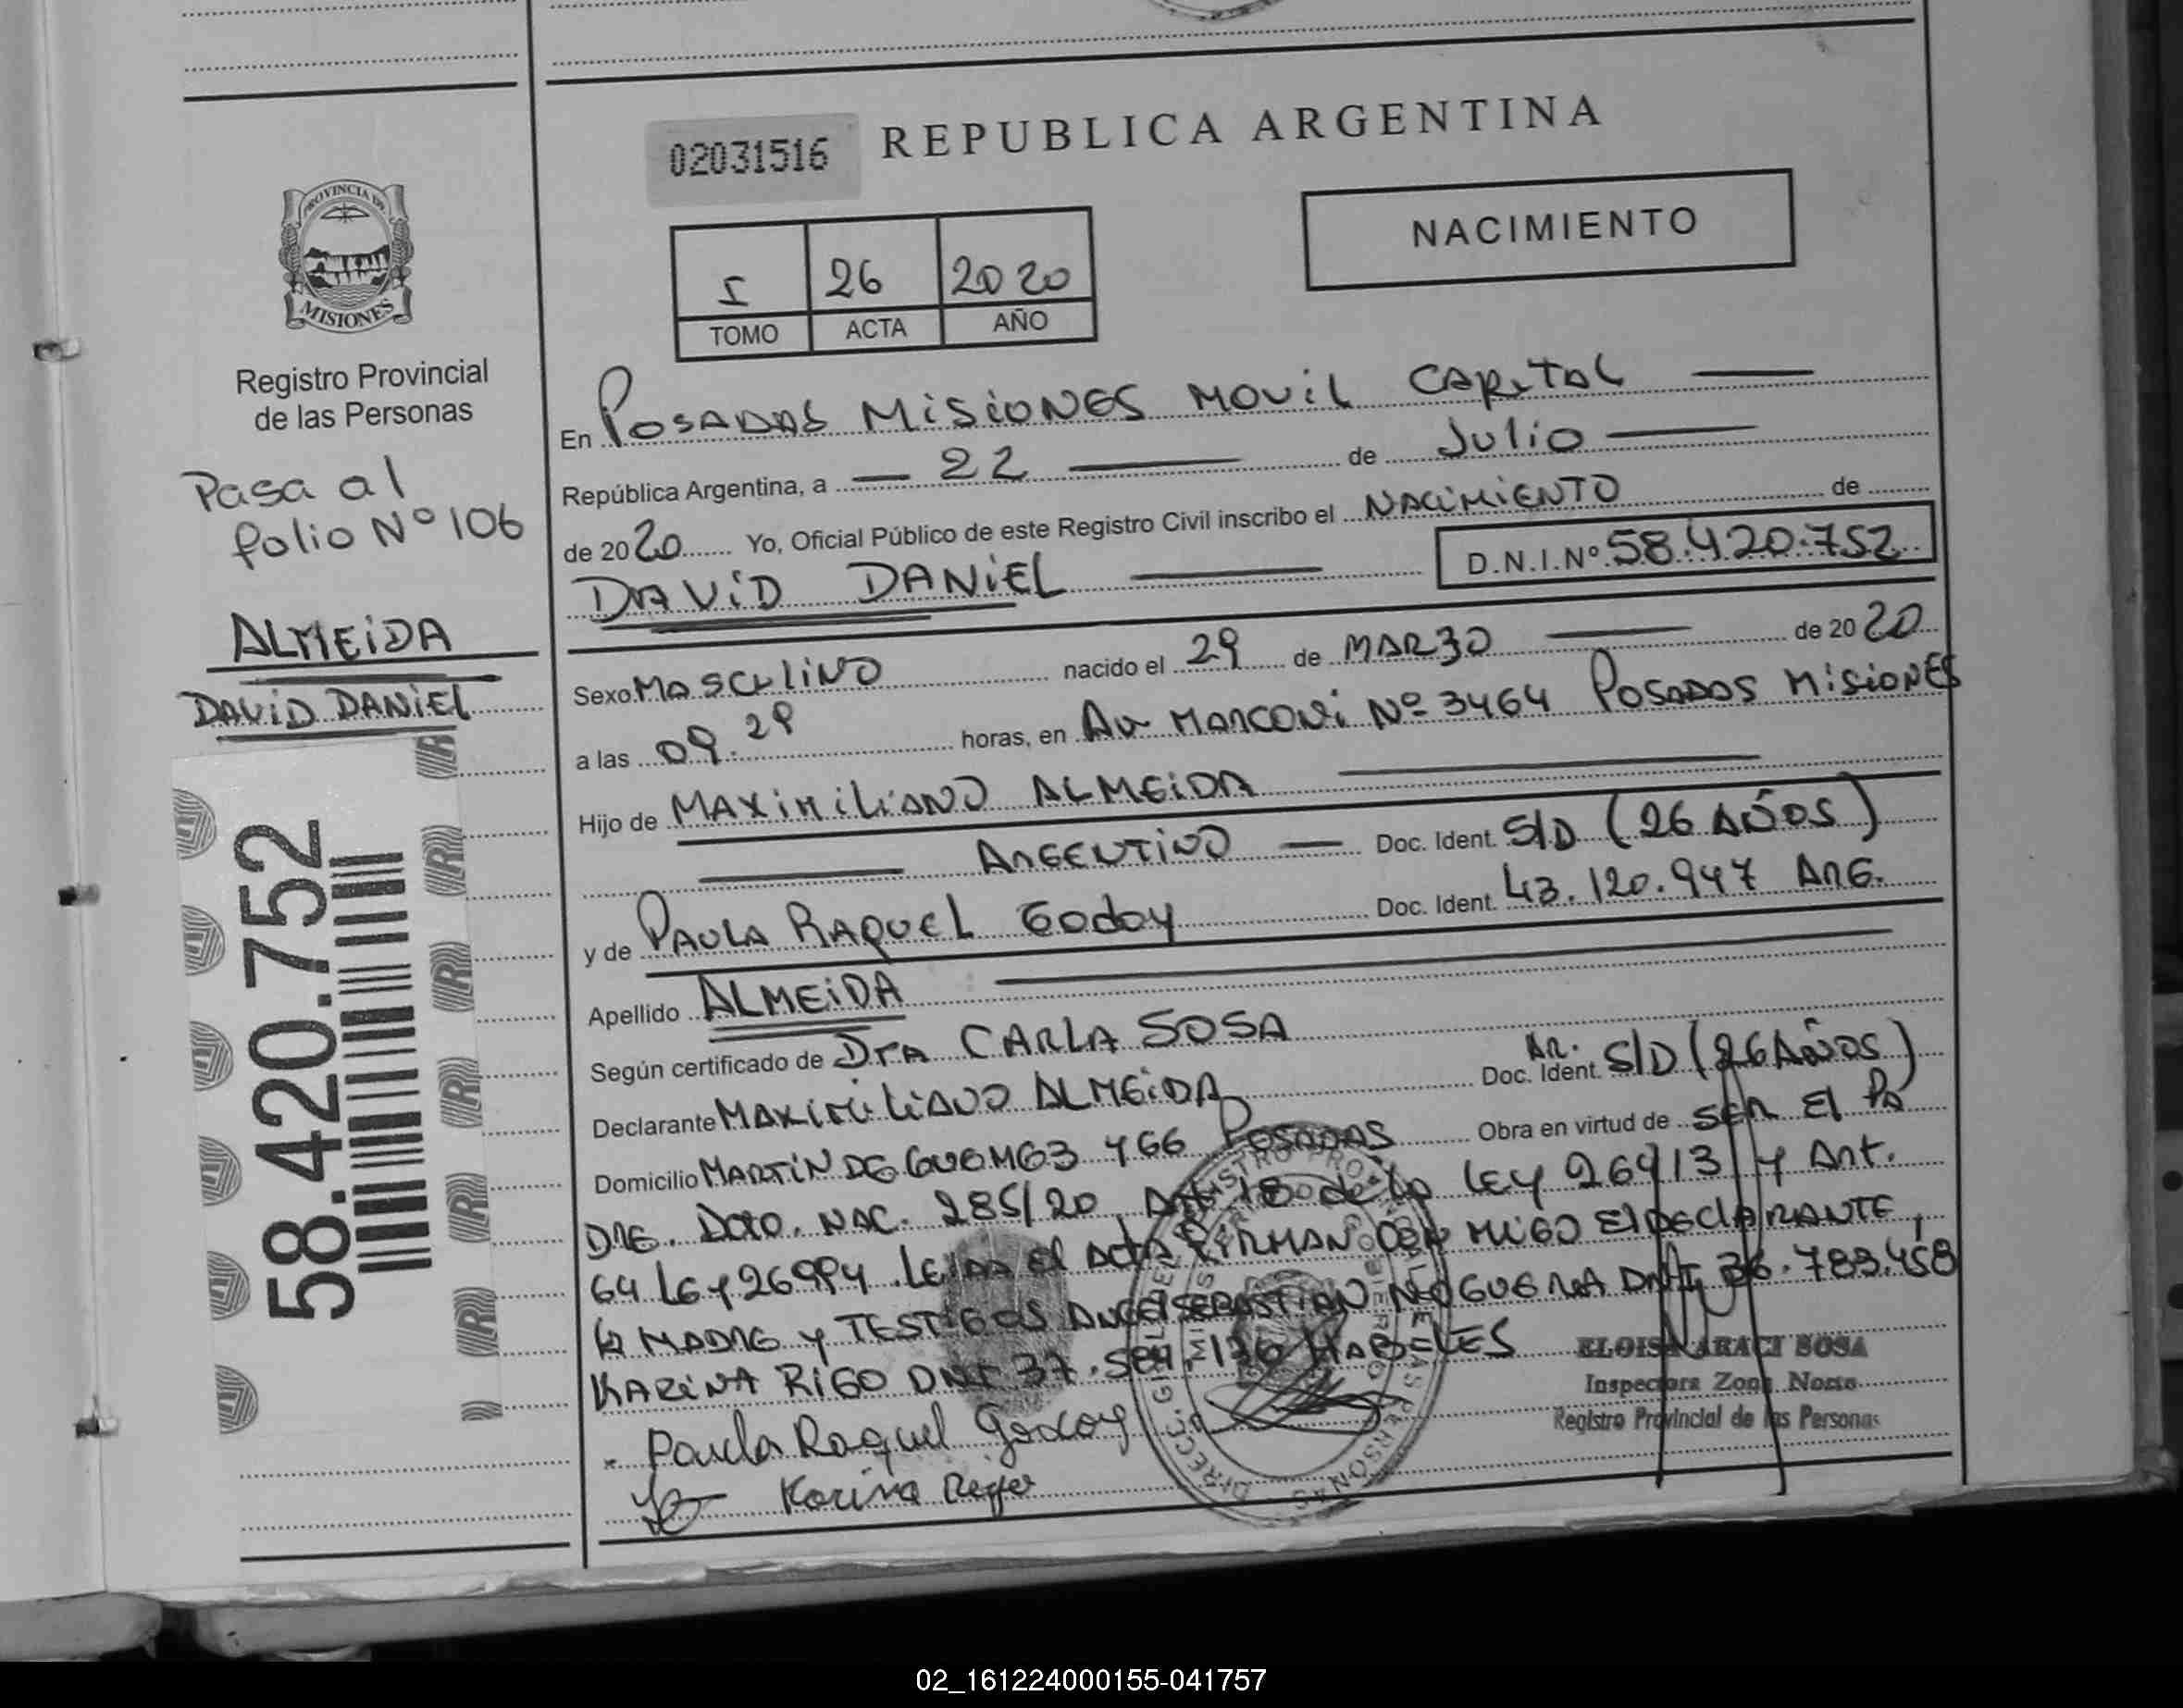 02031516 REPUBLICA ARGENTINA
NACIMIENTO
I 26 2020
TOMO ACTA AÑO
PROVINCIA DE
MISIONES
Registro Provincial
de las Personas
Pasa al
folio Nº 106
ALMEiDA
DAViD DANiEL
58.420.752
En POSADAS MiSiONES MOViL CAPiTAL
República Argentina, a 22 de JULio
de 2020 Yo, Oficial Público de este Registro Civil inscribo el NACiMiENTO de
DAViD DANiEL D.N.I.Nº 58.420.752
Sexo MASCULiNO nacido el 29 de MARZO de 2020
a las 09.29 horas, en AV MARCONi Nº 3464 POSADAS MiSiONES
Hijo de MAXiMiLiANO ALMEiDA
ARGENTiNO Doc. Ident. S/D (26 AÑOS)
y de PAULA RAQUEL Godoy Doc. Ident. 43.120.947 ARG.
Apellido ALMEiDA
Según certificado de DRA CARLA SOSA
Declarante MAXiMiLiANO ALMEiDA Doc. Ident. AR. S/D (26 AÑOS)
Domicilio MARTiN DE GUEMES 466 POSADAS Obra en virtud de SER El PA
DRE. Dcto. NAC. 285/20 Art 18 de la LEY 26413 y Art.
64 LEY 26994. LEiDA El ActA FiRMAN CON MiGO El DEClARANTE,
la MADRE y TESTiGOS ANGEl SEBASTiAN NOGUERA DNI 36.789.458
KARiNA RiGO DNI 37.584.136 HABiLES
Paula Raquel Godoy
ELOISA ARACI SOSA
Inspectora Zona Norte
Registro Provincial de las Personas
02_161224000155-041757